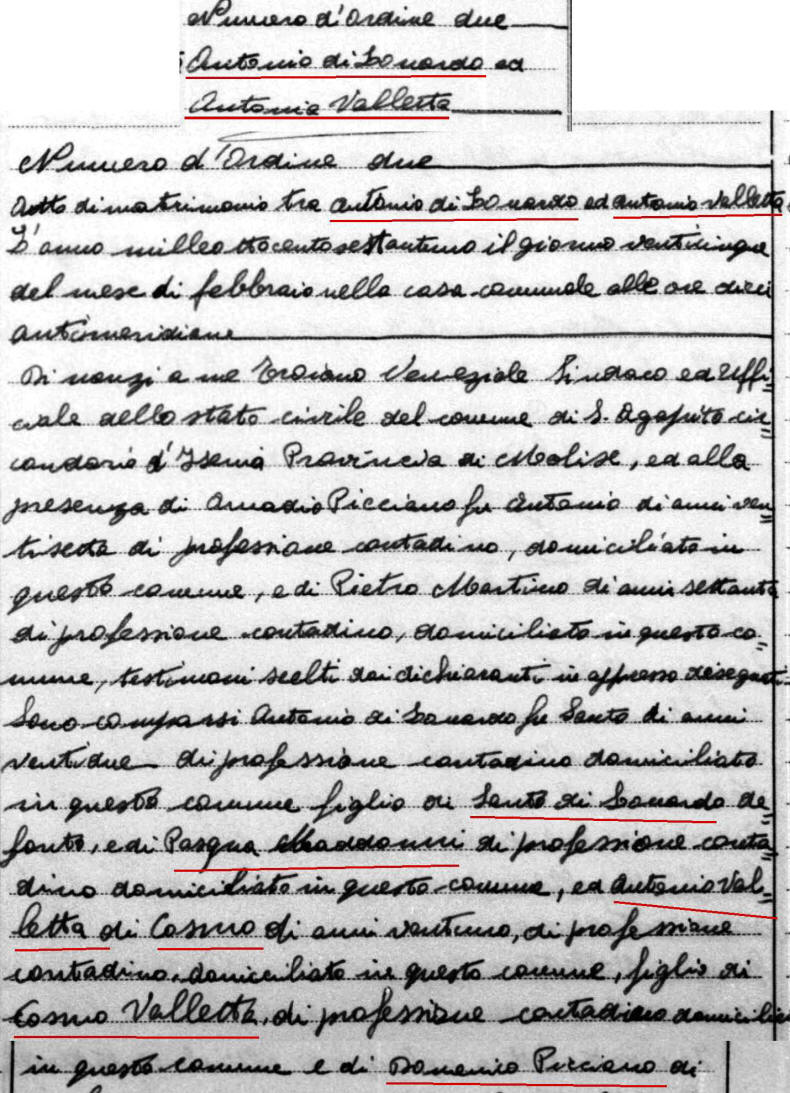 Numero d'Ordine due
Antonio di Lonardo ed
Antonia Valletta
Numero d'Ordine due
Atto di matrimonio tra Antonio di Lonardo ed Antonia Valletta
L'anno milleottocentosessantuno il giorno venticinque
del mese di febbraio nella casa comunale alle ore dieci
antimeridiane
Di nanzi a me Troiano Veneziale Sindaco ed Uffi=
ciale dello stato civile del comune di S. Agapito cir=
condario d'Isernia Provincia di Molise, ed alla
presenza di Amadio Picciano fu Antonio di anni ven=
tisette di professione contadino, domiciliato in
questo comune, e di Pietro Martino di anni sessanta
di professione contadino, domiciliato in questo co=
mune, testimoni scelti dai dichiaranti in appresso
Sono comparsi Antonio di Lonardo fu Santo di anni
ventidue di professione contadino domiciliato
in questo comune figlio di Santo di Lonardo de=
fonto, e di Pasqua Maddonni di professione conta=
dino domiciliato in questo comune, ed Antonia Val=
letta di Cosmo di anni ventuno, di professione
contadino, domiciliato in questo comune, figlio di
Cosmo Valletta, di professione contadino
in questo comune e di Domenica Picciano di